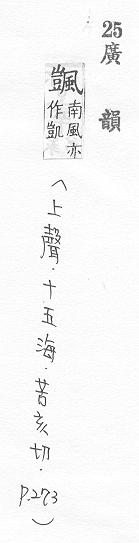 25廣韻
颽南風亦
作凱
（上聲．十五海．苦亥切．
P.273）